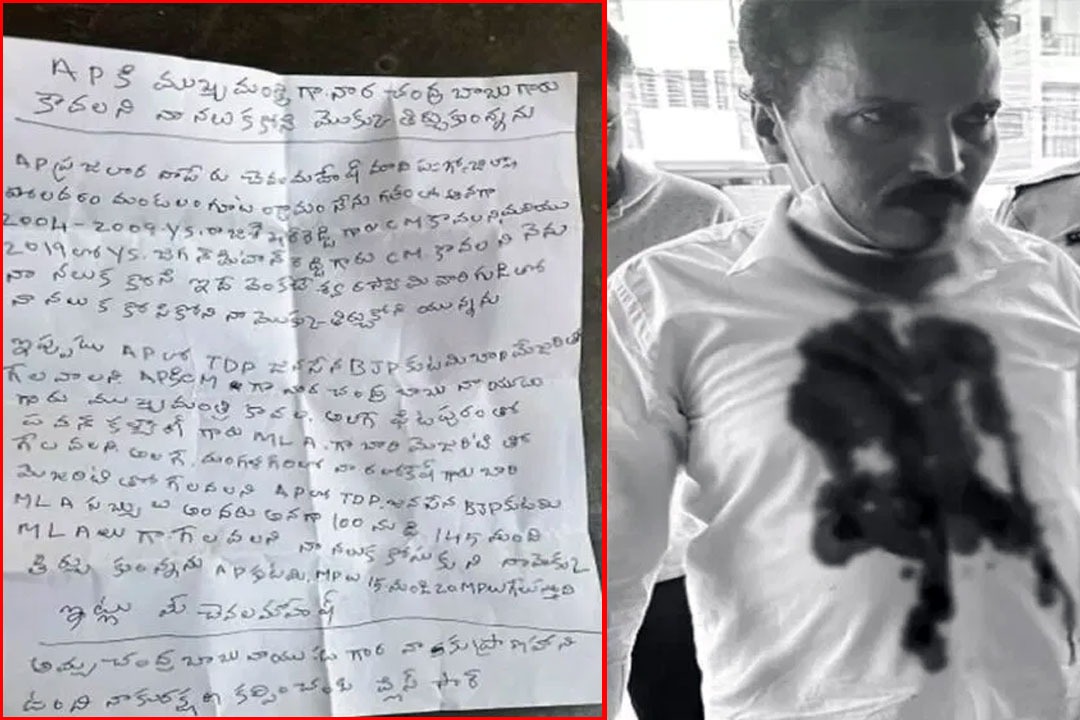 AP కి ముఖ్యమంత్రి గా నార చంద్ర బాబు గారు
కావలని నా నలుక కోసి మొక్కు తిర్చుకుంన్నను
AP ప్రజలార నాపేరు చెవల మహేష్ మాది ప.గో.జిల్లా
మండలం గుంట గ్రామం నేను గతంలో అనగా
2004-2009 YS. రాజశేఖర్ రెడ్డి గారు CM కావలని మరియు
2019 లో YS. జగన్ మోహన్ రెడ్డి గారు CM. కావలని నేను
నా నలుక కోసి ఇదే వెంకటేశ్వర స్వామి వారి గుడిలో
నా నలుక కోసికోని నా మొక్కు తిర్చుకోని యున్నను
ఇప్పుడు AP లో TDP జనసేన BJP కుటమి బారి మేజరితో
గెలవాలని APకి CM గా నార చంద్ర బాబు నాయుడు
గారు ముఖ్యమంత్రి కావల, అలగే పిటపురం లో
పవన్ కళ్యాణ్ గారు MLA. గా బారి మెజరిటి తో
గెలవలని. అలగే. మంగళగిరిలో నార లోకేష్ గారు బారి
మెజరిటి తో గెలవలని AP లో TDP. జనసేన BJP కుటమి
MLA అందరు అనగా 100 నుడి 145 మంది
MLA లు గా గెలవలని నా నలుక కోసుకుని నా మొక్కు
తిర్చు కుంన్నను AP కుటమి. MPలు 15 నుండి 20 MPలు గెలుస్తది
ఇట్లు మీ చెవల మహేష్
అమ్మ చంద్ర బాబు నాయుడు గార నాకు ప్రాణహాని
ఉంది నాకు రక్షణ కల్పించండి ప్లీస్ సార్